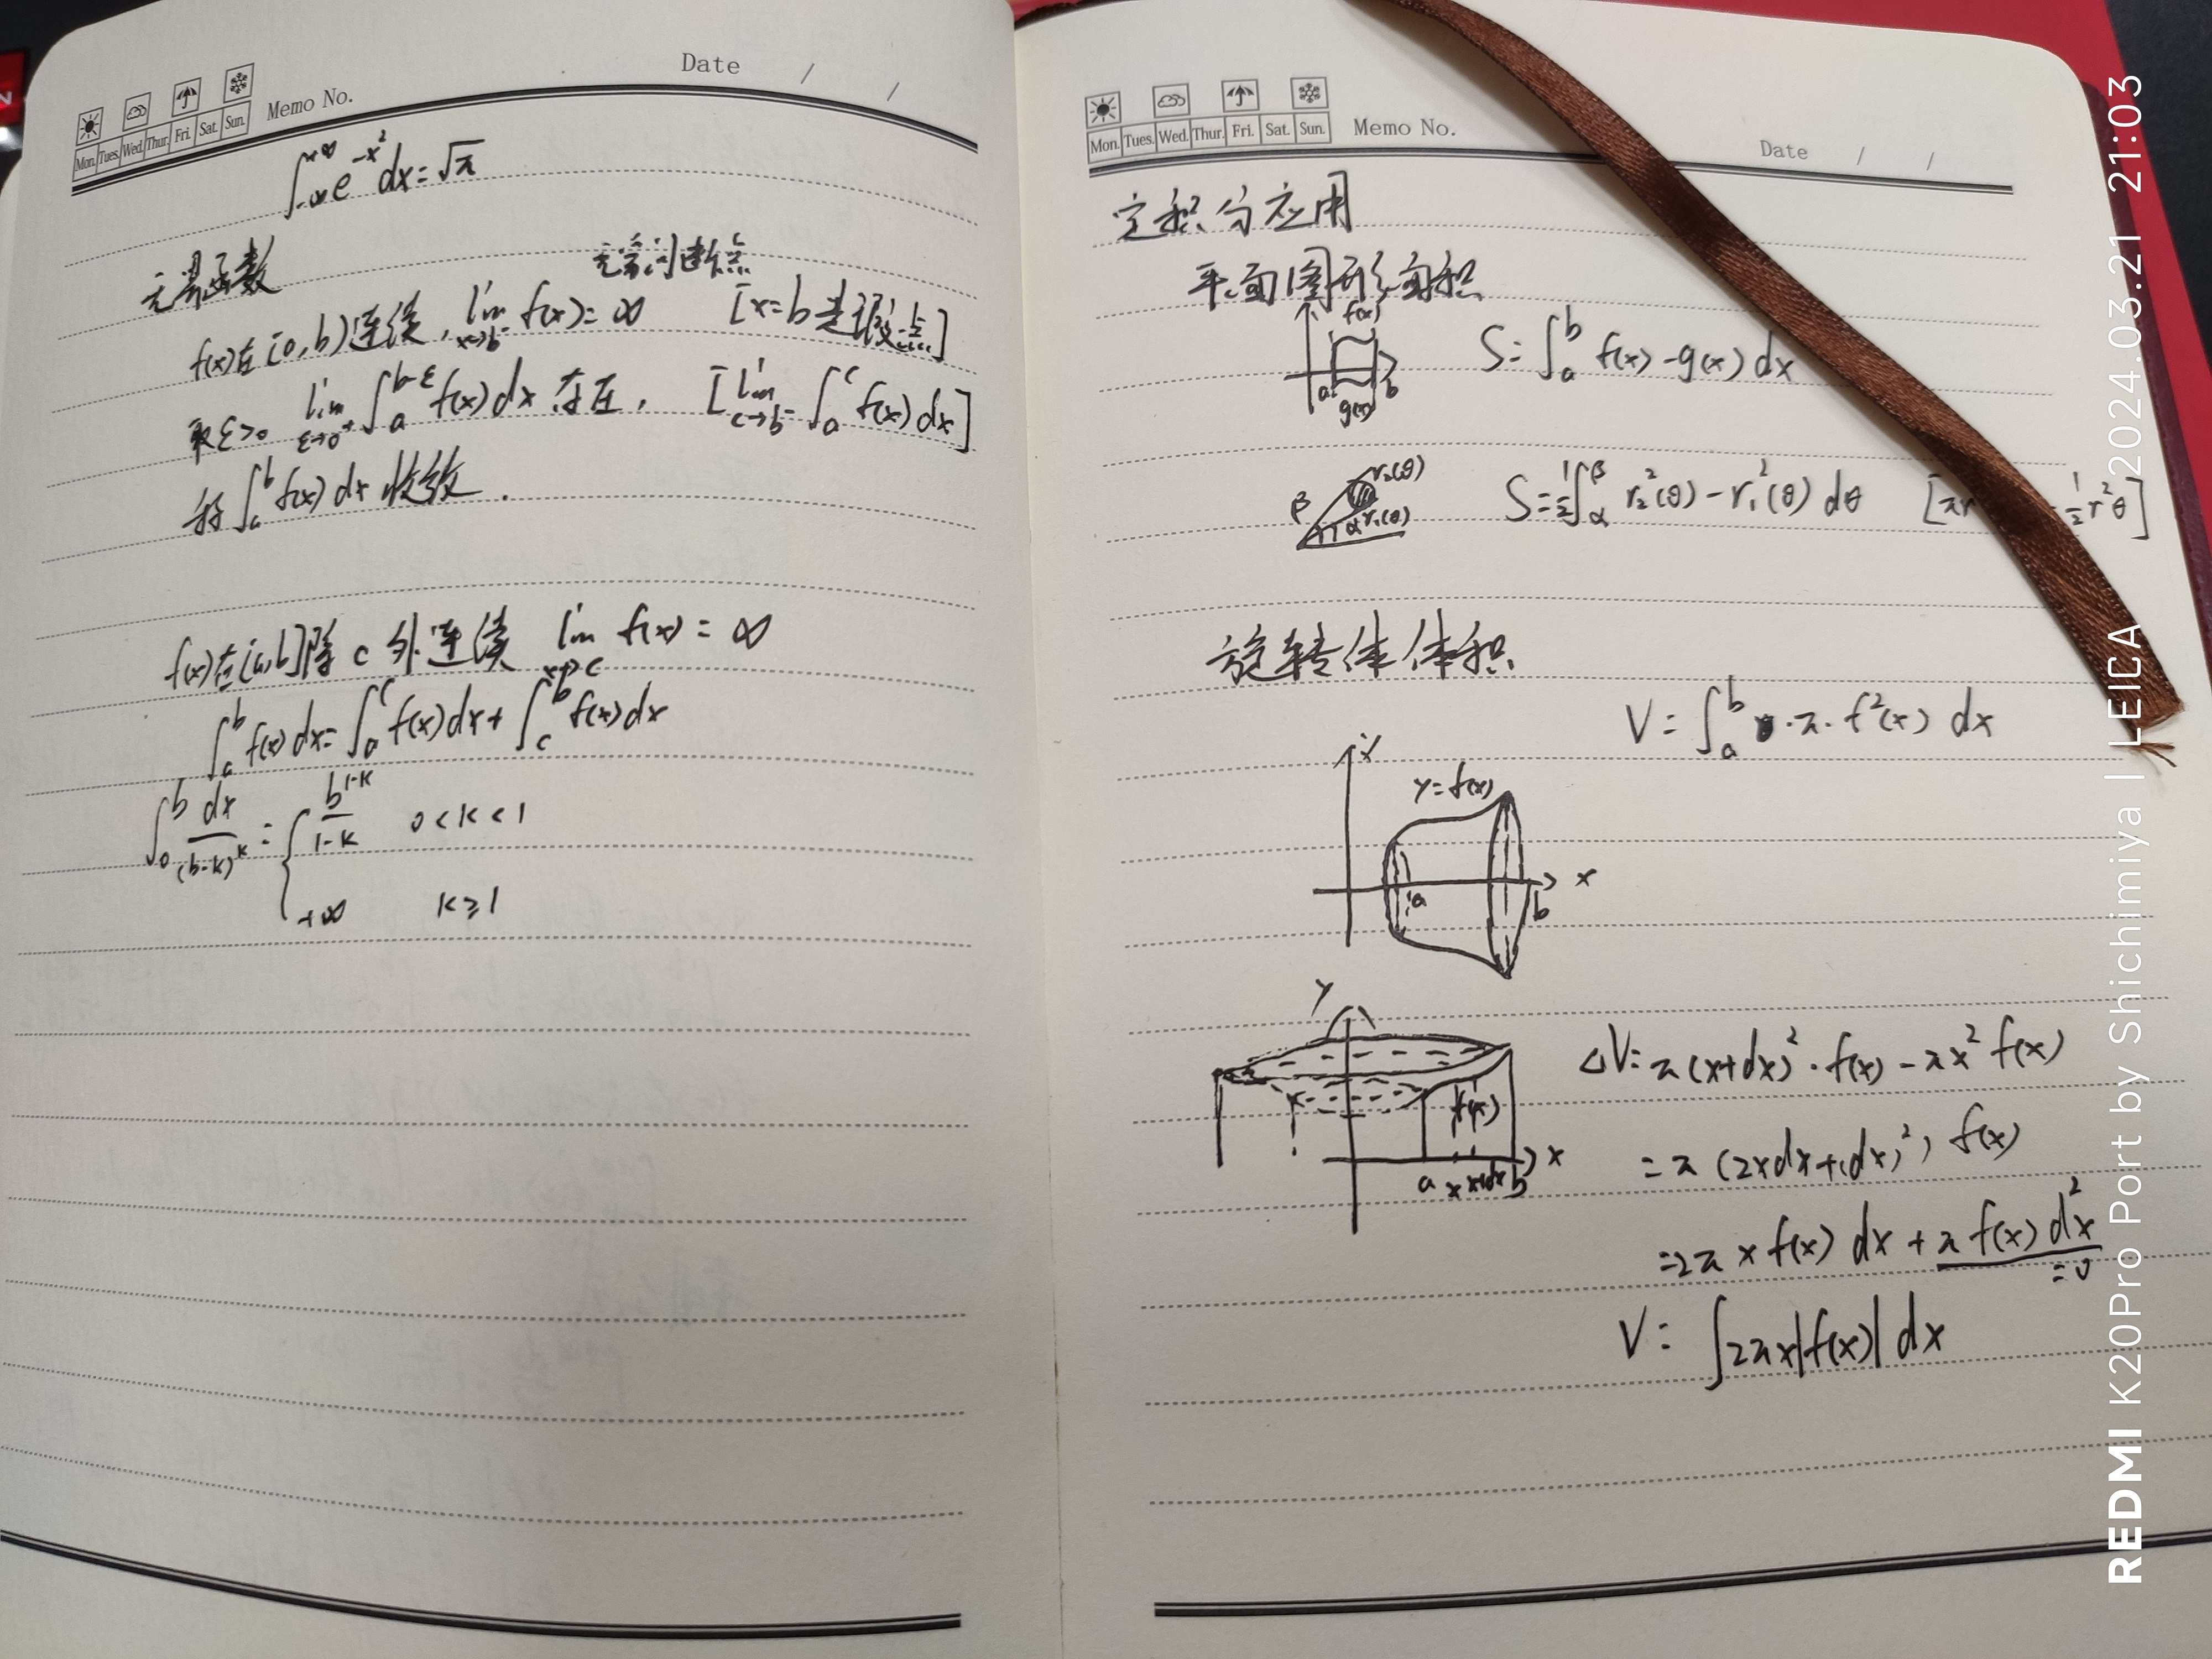 Memo No.
Date / /
Mon. Tues. Wed. Thur. Fri. Sat. Sun.
∫_{-∞}^{+∞} e^{-x²} dx = √π
无界函数
无穷间断点
f(x)在[a,b)连续, lim_{x→b⁻} f(x) = ∞ [x=b是瑕点]
取ε>0 lim_{ε→0⁺} ∫_a^{b-ε} f(x)dx 存在, [lim_{c→b⁻} ∫_a^c f(x)dx]
称 ∫_a^b f(x)dx 收敛.
f(x)在[a,b]除 c 外连续 lim_{x→c} f(x) = ∞
∫_a^b f(x)dx = ∫_a^c f(x)dx + ∫_c^b f(x)dx
∫_0^b dx/(b-x)^k = { b^{1-k}/(1-k) 0<k<1
+∞ k≥1
Memo No.
Date / /
Mon. Tues. Wed. Thur. Fri. Sat. Sun.
定积分应用
平面图形面积
f(x) g(x) a b S = ∫_a^b f(x) - g(x) dx
β α r₁(θ) r₂(θ) S = ½∫_α^β r₂²(θ) - r₁²(θ) dθ [πr ½r²θ]
旋转体体积
Y y=f(x) a b x V = ∫_a^b π · f²(x) dx
Y f(x) a x x+dx b x
ΔV = π(x+dx)² · f(x) - πx² f(x)
= π(2xdx+(dx)²) f(x)
= 2πx f(x) dx + π f(x) dx² = 0
V = ∫ 2πx|f(x)| dx
REDMI K20Pro Port by Shichimiya | LEICA 2024.03.21 21:03